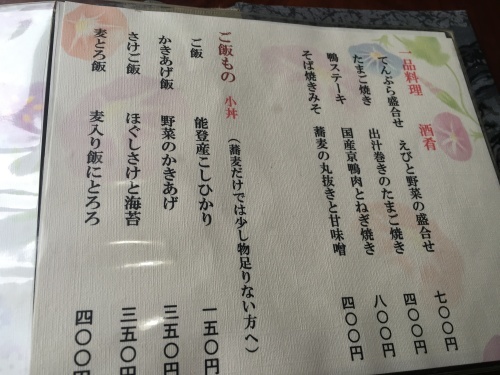 一品料理 酒肴
てんぷら盛合せ えびと野菜の盛合せ 七〇〇円
たまご焼き 出汁巻きのたまご焼き 四〇〇円
鴨ステーキ 国産京鴨肉とねぎ焼き 八〇〇円
そば焼きみそ 蕎麦の丸抜きと甘味噌 四〇〇円
ご飯もの 小丼 (蕎麦だけでは少し物足りない方へ)
ご飯 能登産こしひかり 一五〇円
かきあげ飯 野菜のかきあげ 三五〇円
さけご飯 ほぐしさけと海苔 三五〇円
麦とろ飯 麦入り飯にとろろ 四〇〇円